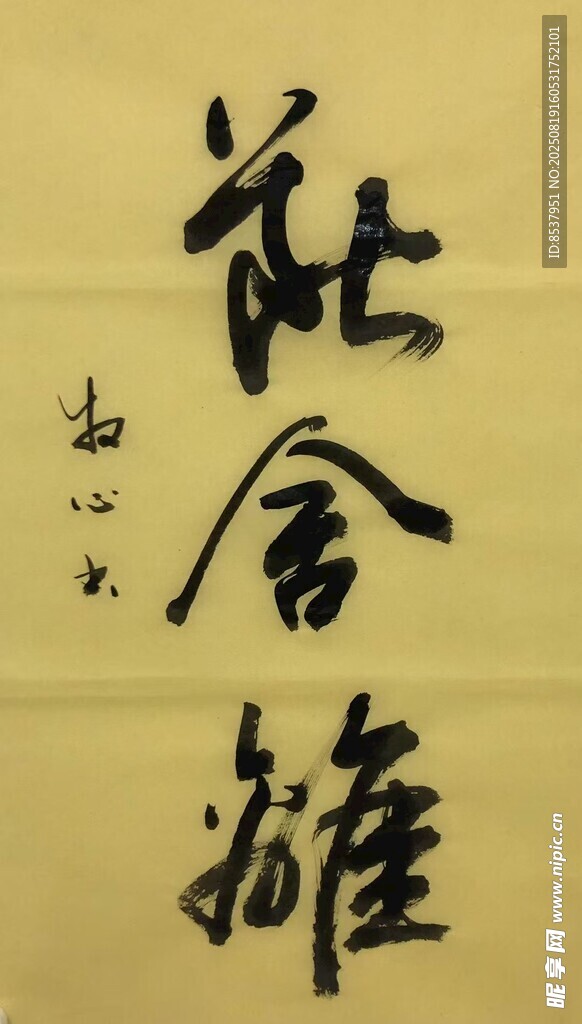 断舍離
牧心书
ID:8537951 NO:20250819160531752101
昵享网 www.nipic.cn